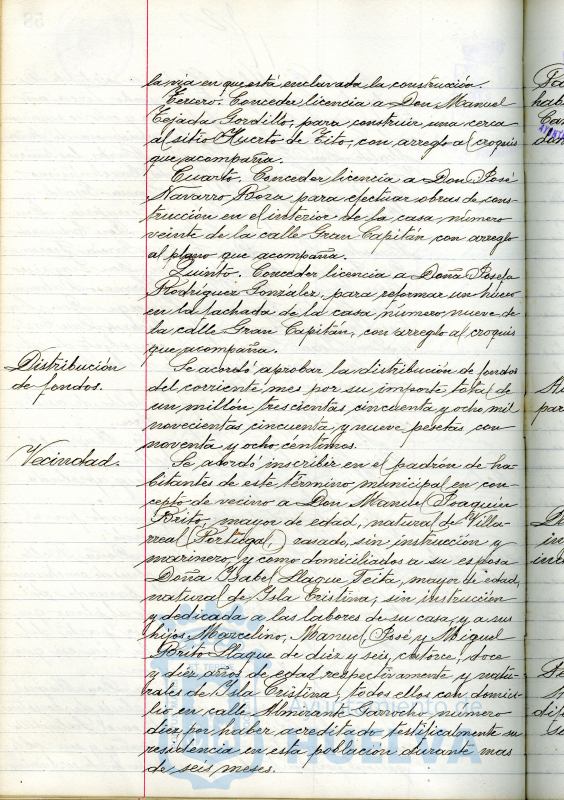 la vía en que está enclavada la construcción.
Tercero. Conceder licencia a Don Manuel
Tejada Gordillo, para construir una cerca
al sitio Huerto de Tito, con arreglo al croquis
que acompaña.
Cuarto. Conceder licencia a Don José
Navarro Roza para efectuar obras de cons-
trucción en el interior de la casa número
veinte de la calle Gran Capitán con arreglo
al plano que acompaña.
Quinto. Conceder licencia a Doña Josefa
Rodríguez Gonzalez, para reformar un hueco
en la fachada de la casa, número, nueve, de
la calle Gran Capitán, con arreglo al croquis
que acompaña.
Distribución
de fondos.
Se acordó aprobar la distribución de fondos
del corriente mes por su importe total de
un millón trescientas cincuenta y ocho mil
novecientas cincuenta y nueve pesetas con
noventa y ocho céntimos.
Vecindad.
Se acordó inscribir en el padrón de ha-
bitantes de este término municipal en con-
cepto de vecino a Don Manuel Joaquin
Brito, mayor de edad, natural de Villa-
rreal (Portugal,) casado, sin instrucción y
marinero, y como domiciliados a su esposa
Doña Isabel Llaque Feita, mayor de edad,
natural de Isla Cristina, sin instrucción
y dedicada a las labores de su casa, y a sus
hijos Marcelino, Manuel, José y Miguel
Brito Llaque de diez y seis, catorce, doce
y diez años de edad respectivamente y natu-
rales de Isla Cristina, todos ellos con domici-
lio en calle Almirante Garrocho número
diez, por haber acreditado testificalmente su
residencia en esta población durante mas
de seis meses.
Ayuntamiento de
HUELVA